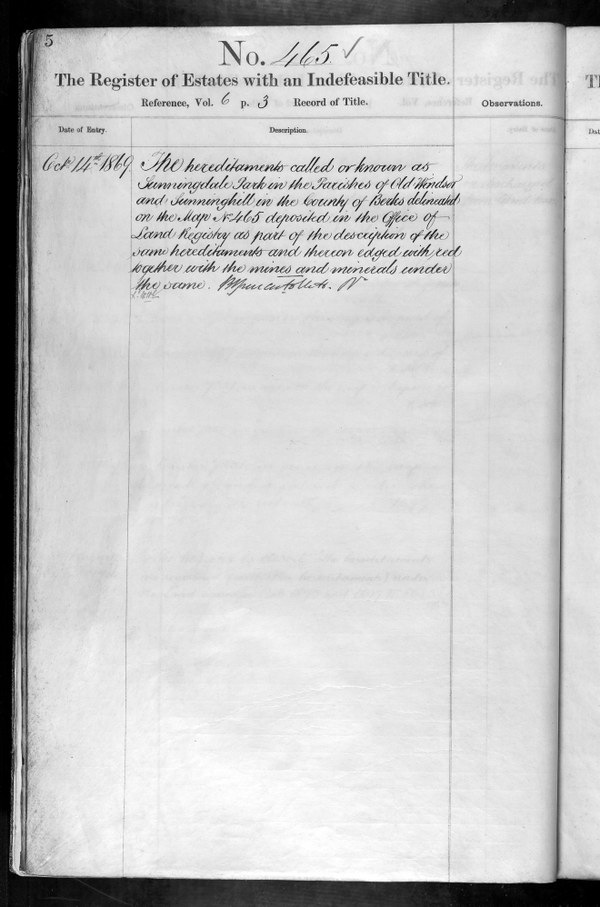 5
No. 465
The Register of Estates with an Indefeasible Title.
Reference, Vol. 6 p. 3 Record of Title.
Observations.
Date of Entry.
Description.
Octr 14th 1869
The hereditaments called or known as
Sunningdale Park in the Parishes of Old Windsor
and Sunninghill in the County of Berks delineated
on the Map No 465 deposited in the Office of
Land Registry as part of the description of the
same hereditaments and thereon edged with red
together with the mines and minerals under
the same.